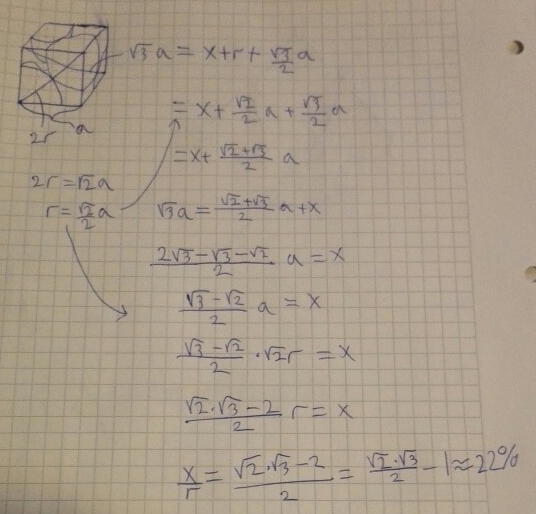 √3 a = x + r + √3/2 a
= x + √2/2 a + √3/2 a
2r a
= x + (√2+√3)/2 a
2r = √2a
r = √2/2 a
√3a = (√2+√3)/2 a + x
(2√3-√3-√2)/2 a = x
(√3-√2)/2 a = x
(√3-√2)/2 · √2r = x
(√2·√3-2)/2 r = x
x/r = (√2·√3-2)/2 = (√2·√3)/2 - 1 ≈ 22%